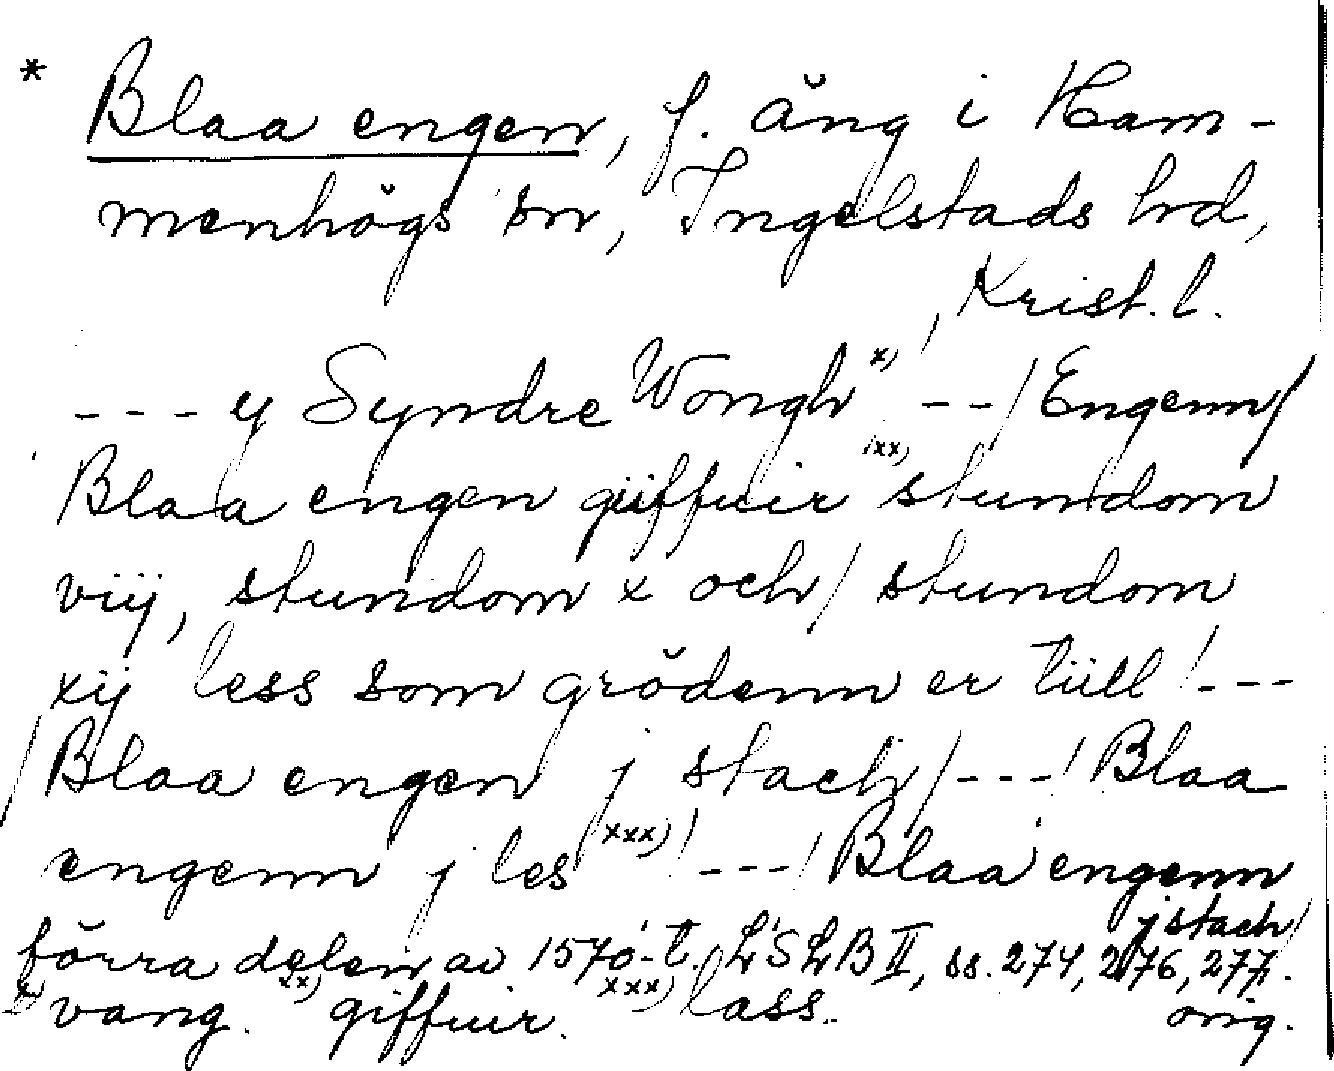 * Blaa engen, f. äng i Ham-
menhögs sn, Ingelstads hd,
Krist. l.
--- y Syndre Wongh x) / -- / Engenn /
Blaa engen giiffuir xx) stundom
viij, stundom x och / stundom
xij less som grödenn er tüll / ---
/ Blaa engen j stach / --- / Blaa
engenn j les xxx) / --- / Blaa engenn
j stach /
förra delen av 1570-t. LSLB II, ss. 274, 276, 277.
x) vang. xx) giffuir. xxx) lass. orig.